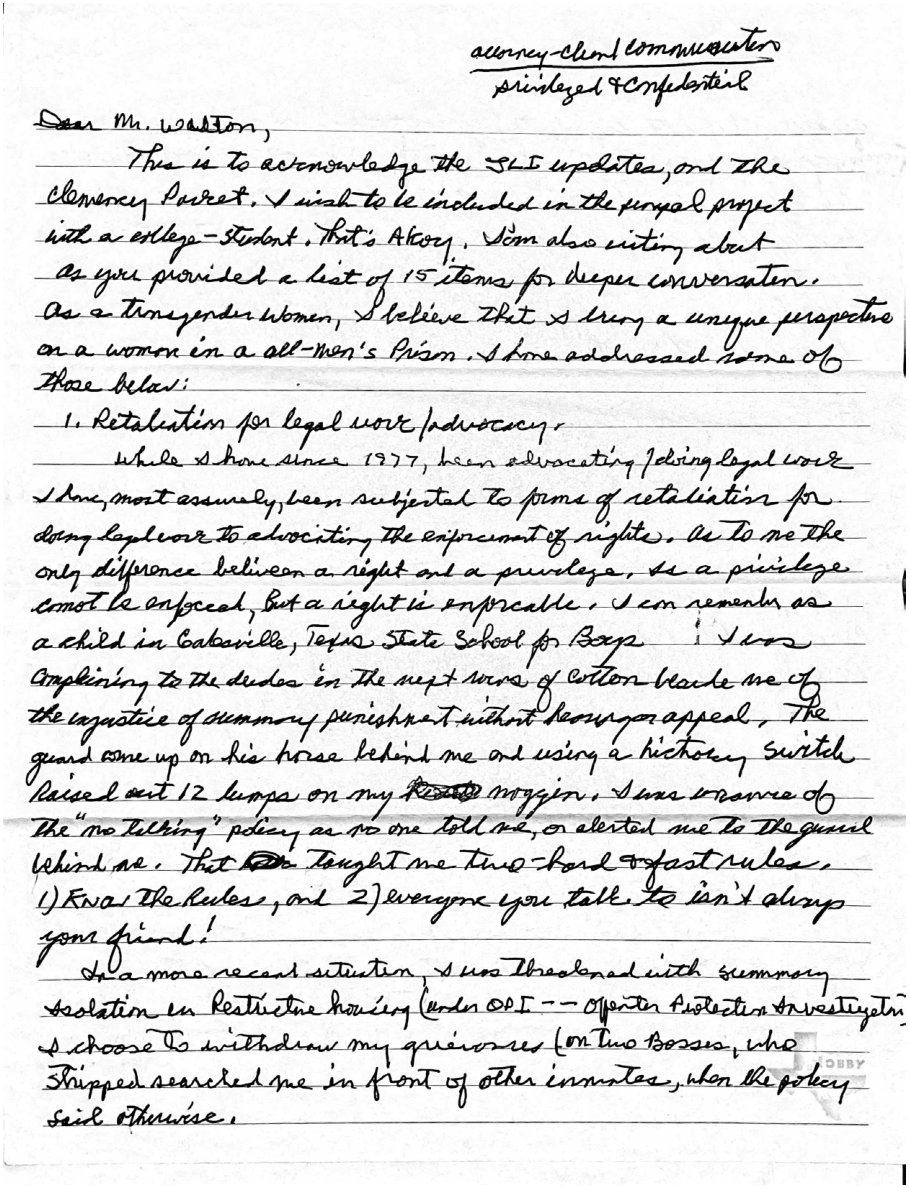 attorney-client communication
privileged & confidential
Dear Mr. Walton,
This is to acknowledge the JLI updates, and the
Clemency Packet. I wish to be included in the penpal project
with a college-student. That's Akoy. I'm also writing about
as you provided a list of 15 items for deeper conversation.
As a transgender women, I believe that I bring a unique perspective
on a woman in a all-men's Prison. I have addressed some of
those below:
1. Retaliation for legal work/advocacy.
While I have since 1977, been advocating/doing legal work
I have, most assurely, been subjected to forms of retaliation for
doing legal work to advocating the enforcement of rights. As to me the
only difference between a right and a privilege, is a privilege
cannot be enforced, but a right is enforcable. I can remember as
a child in Gatesville, Texas State School for Boys I was
complining to the dudes in the next rows of cotton beside me of
the injustice of summary punishment without hearing or appeal. The
guard come up on his horse behind me and using a hickory switch
raised out 12 lumps on my noggin. I was unaware of
the "no talking" policy as no one told me, or alerted me to the guard
behind me. That taught me two-hard & fast rules.
1) Know the Rules, and 2) everyone you talk to isn't always
your friend!
In a more recent situation, I was threatened with summary
isolation in Restrictive housing (under OPI -- Offender Protection Investigation)
I choose to withdraw my grievances (on two Bosses, who
stripped searched me in front of other inmates, when the policy
said otherwise.
OBBY